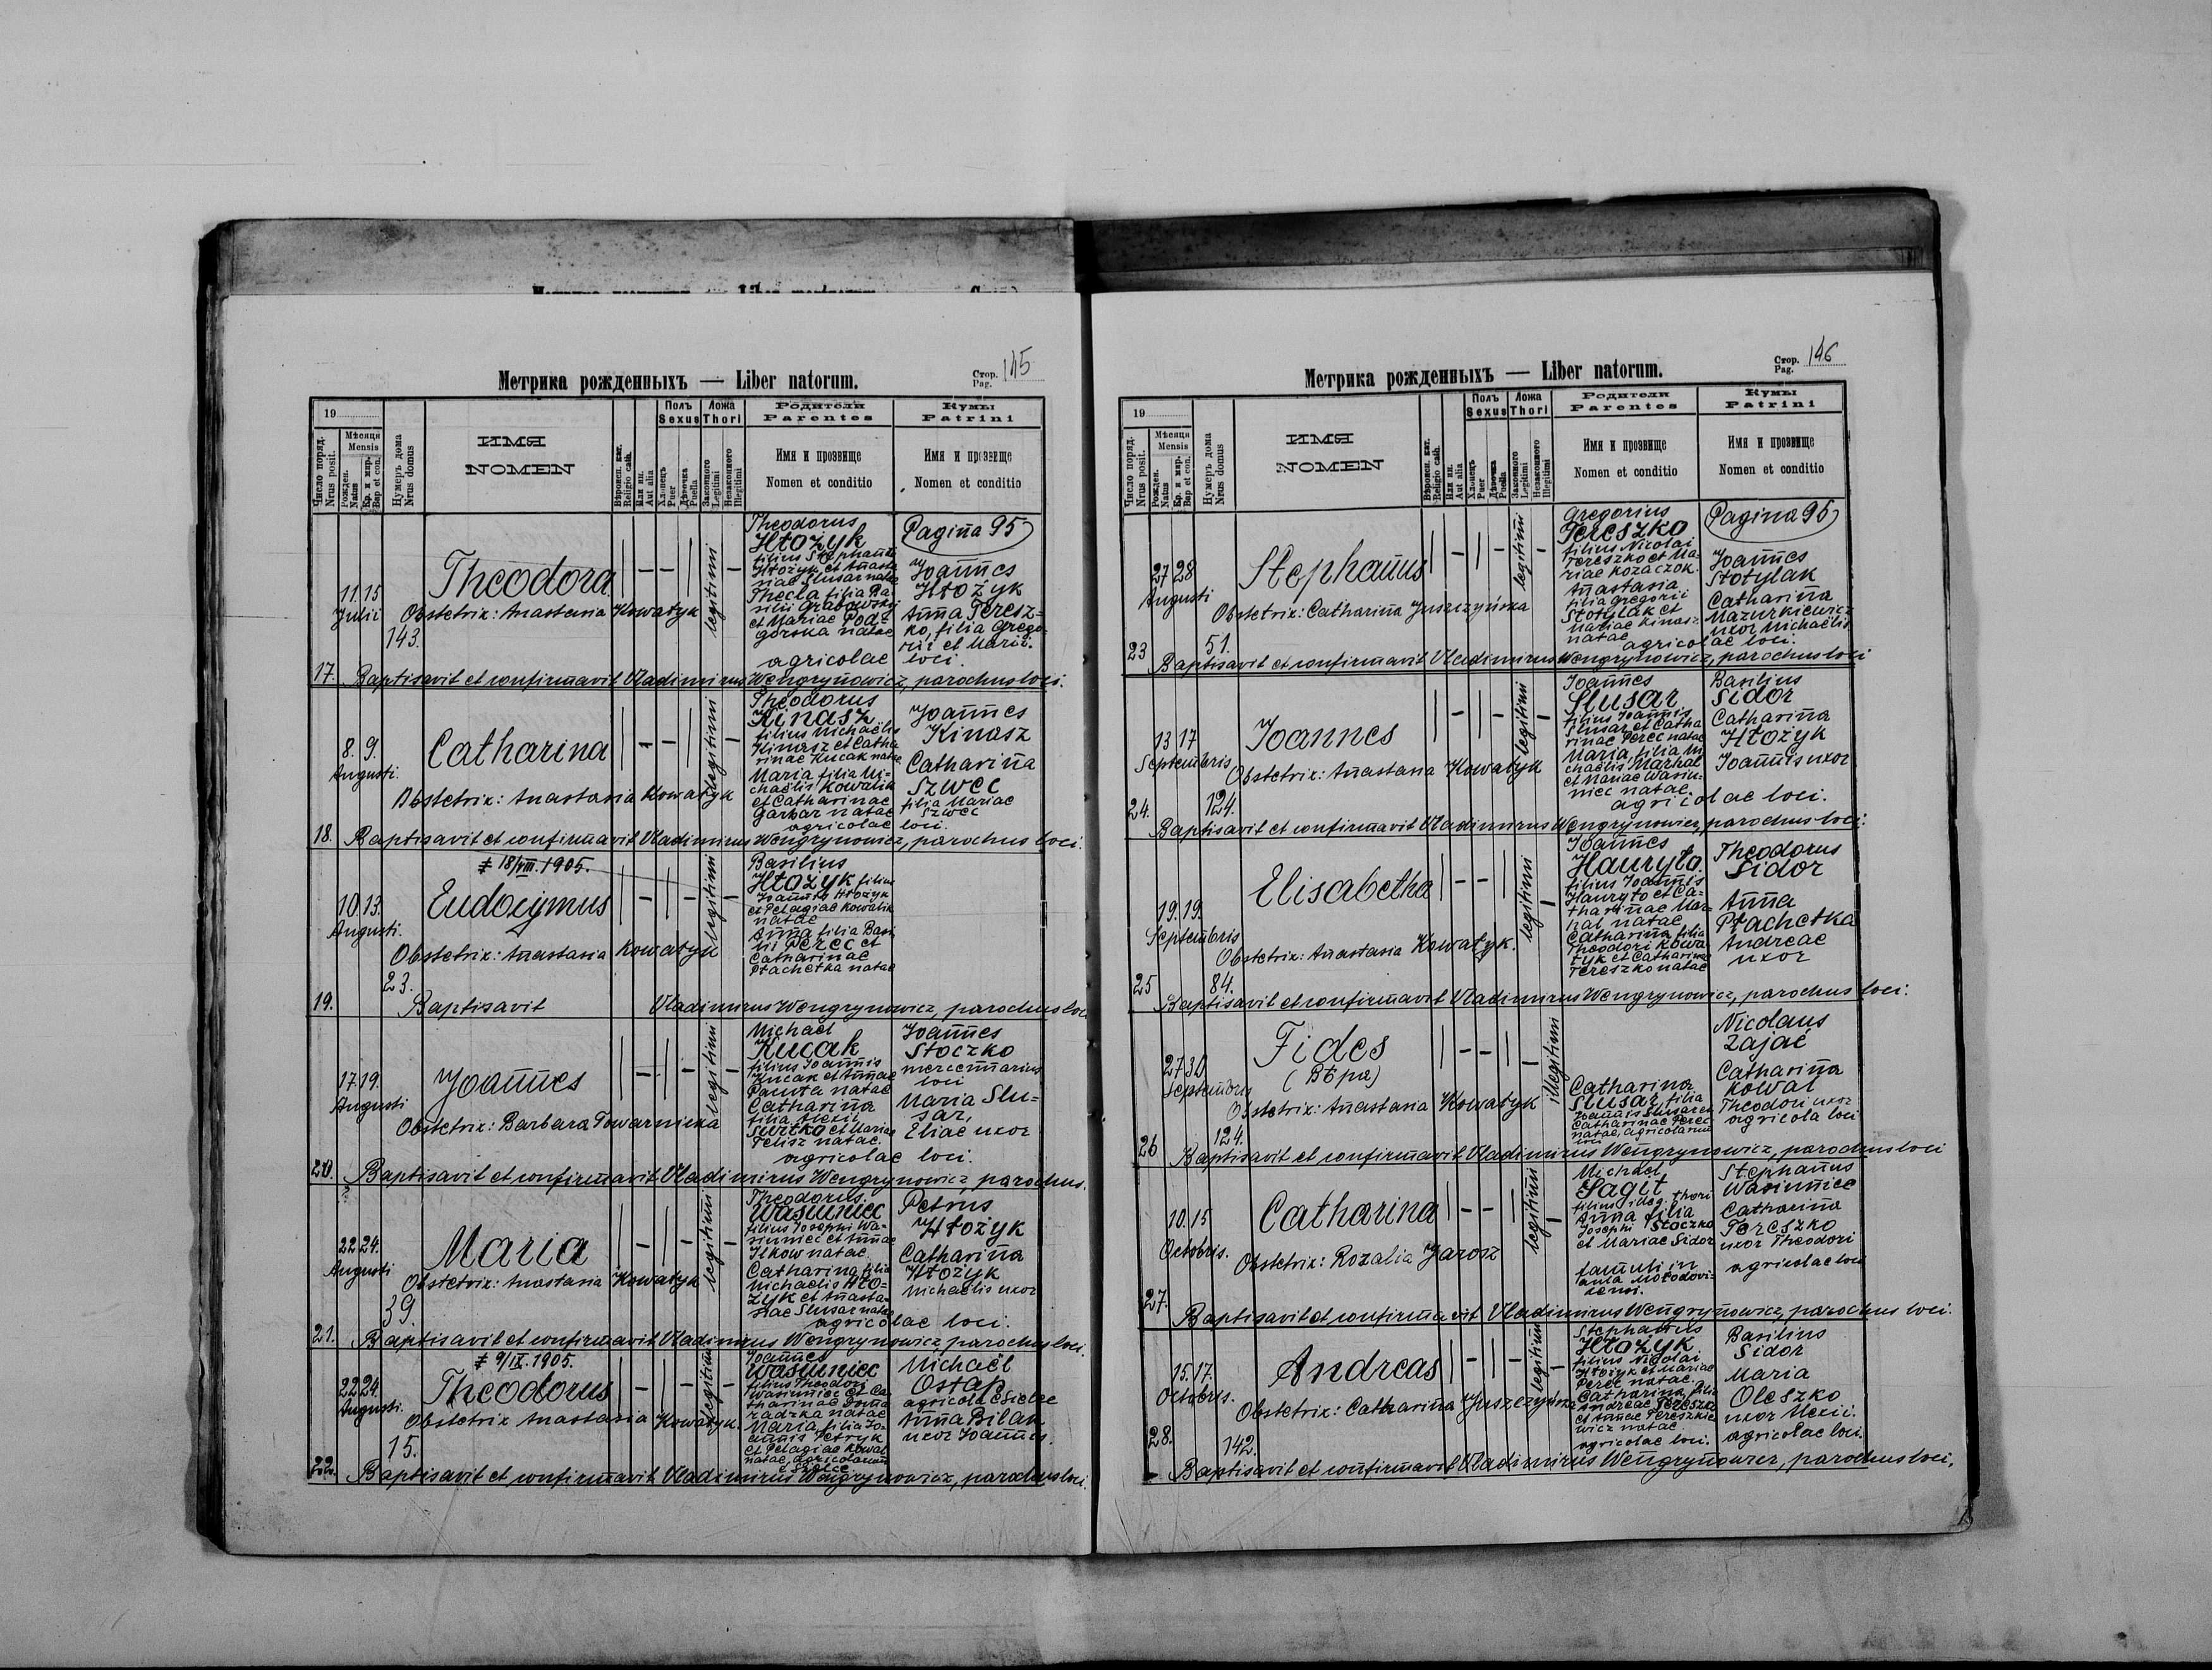 Метрика рожденныхъ — Liber natorum.
Стор. Pag. 145
19
Число поряд. Nrus posit.
Мѣсяця Mensis
Рожден. Natus
Кр. и мир. Bap et con.
Нумеръ дома Nrus domus
ИМЯ
NOMEN
Вѣроисп. кат. Religio cath.
Или ин. Aut alia
Полъ Sexus
Хлопецъ Puer
Дѣвочка Puella
Ложа Thori
Законного Legitimi
Незаконного Illegitimi
Родители
Parentes
Имя и прозвище
Nomen et conditio
Кумы
Patrini
Имя и прозвище
Nomen et conditio
Pagina 95
11. 15
Julii
143.
17.
Theodora
Obstetrix: Anastasia Kowałyk
legitimi
Theodorus
Htożyk
filius Stephani
Htożyk et Anasta
siae Slusar natae
Thecla filia Ba
silii Grabowskij
et Mariae Pod=
górska natae
agricolae loci.
Joannes
Htożyk
Anna Teresz=
ko, filia Grego=
rii et Mariae
Baptisavit et confirmavit Vladimirus Wengrynowicz, parochus loci.
8. 9.
Augusti.
18.
Catharina
Obstetrix: Anastasia Kowałyk
legitimi
Theodorus
Kinasz
filius Michaëlis
Kinasz et Catha
rinae Kucak natae
Maria filia Mi=
chaëlis Kowalik
et Catharinae
Garbar natae
agricolae loci.
Joannes
Kinasz
Catharina
Szwec
filia Mariae
Szwec
Baptisavit et confirmavit Vladimirus Wengrynowicz, parochus loci.
‡ 18/VIII. 1905.
10. 13.
Augusti.
23.
19.
Eudocymus
Obstetrix: Anastasia Kowałyk
legitimi
Basilius
Htożyk filius
Joannis Htożyk
et Pelagiae Kowalik
natae
Anna filia Basi
lii Perec et
Catharinae
Ptachetka natae
Baptisavit Vladimirus Wengrynowicz, parochus loci
17 19.
Augusti
20.
Joannes
Obstetrix: Barbara Towarnicka
legitimi
Michaël
Kucak
filius Joannis
Kucak et Annae
Pauta natae
Catharina
filia Alexii
Switko et Mariae
Felisz natae.
agricolae loci.
Joannes
Stoczko
mercennarius
loci
Maria Slu=
sar,
Eliae uxor
Baptisavit et confirmavit Vladimirus Wengrynowicz, parochus.
22 24.
Augusti
39.
21.
Maria
Obstetrix: Anastasia Kowałyk
legitimi
Theodorus
Wasiuniec
filius Josephi Wa=
siuniec et Annae
Ilkow natae.
Catharina filia
Michaëlis Hto=
żyk et Anasta=
siae Slusar natae
agricolae loci.
Petrus
Htożyk
Catharina
Htożyk
Michaëlis uxor
Baptisavit et confirmavit Vladimirus Wengrynowicz parochus loci.
‡ 9/IX. 1905.
22 24.
Augusti.
15.
22.
Theodorus
Obstetrix Anastasia Kowałyk.
legitimi
Joannes
Wasiuniec
filius Theodori
Wasiuniec et Ca
tharinae
natae
Maria filia Jo=
annis Petryk
et Pelagiae Kowal
natae, agricolarum
Michaël
Ostap
agricola
Anna Bilak
uxor Joannis.
Baptisavit et confirmavit Vladimirus Wengrynowicz, parochus loci.
Метрика рожденныхъ — Liber natorum.
Стор. Pag. 146
19
Число поряд. Nrus posit.
Мѣсяця Mensis
Рожден. Natus
Кр. и мир. Bap et con.
Нумеръ дома Nrus domus
ИМЯ
NOMEN
Вѣроисп. кат. Religio cath.
Или ин. Aut alia
Полъ Sexus
Хлопецъ Puer
Дѣвочка Puella
Ложа Thori
Законного Legitimi
Незаконного Illegitimi
Родители
Parentes
Имя и прозвище
Nomen et conditio
Кумы
Patrini
Имя и прозвище
Nomen et conditio
Pagina 96
27 28
Augusti
51.
23
Stephanus
Obstetrix: Catharina Juszczyńska
legitimi
Gregorius
Tereszko
filius Nicolai
Tereszko et Ma=
riae Kozaczok.
Anastasia
filia Gregorii
Stotylak et
Mariae Kinasz
natae
agricolae loci.
Joannes
Stotylak
Catharina
Mazurkiewicz
uxor Michaëlis
Baptisavit et confirmavit Vladimirus Wengrynowicz, parochus loci
13 17
Septembris
124.
24.
Joannes
Obstetrix: Anastasia Kowałyk
legitimi
Joannes
Slusar
filius Joannis
Slusar et Catha
rinae Perec natae
Maria, filia Mi
chaëlis Marhal
et Mariae Wasiu=
niec natae.
agricolae loci.
Basilius
Sidor
Catharina
Htożyk
Joannis uxor
Baptisavit et confirmavit Vladimirus Wengrynowicz, parochus loci.
19. 19.
Septembris
84.
25
Elisabetha
Obstetrix: Anastasia Kowałyk.
legitimi
Joannes
Hauryto.
filius Joannis
Hauryto et Ca=
tharinae Mar=
hal natae
Catharina filia
Theodori Kowa
tyk et Catharinae
Tereszko natae
Theodorus
Sidor
Anna
Ptachetka
Andreae
uxor
Baptisavit et confirmavit Vladimirus Wengrynowicz, parochus loci.
27 30
Septembris
124.
26
Fides
(Вѣра)
Obstetrix: Anastasia Kowałyk
illegitimi
Catharina
Slusar, filia
Joannis Slusar et
Catharinae Perec
natae, agricolarum
loci
Nicolaus
Zając
Catharina
Kowal
Theodori uxor
agricola loci
Baptisavit et confirmavit Vladimirus Wengrynowicz, parochus loci
10. 15
Octobris.
27.
Catharina
Obstetrix: Rozalia Jarosz
legitimi
Michael
Sagit
filius illeg. thori
Anna filia
Josephi Stoczko
et Mariae Sidor
famuli in
aula Mołodovi=
censi.
Stephanus
Wasiuniec
Catharina
Tereszko
uxor Theodori
agricolae loci
Baptisavit et confirmavit Vladimirus Wengrynowicz, parochus loci.
15. 17.
Octobris.
142.
28.
Andreas
Obstetrix: Catharina Juszczyńska
legitimi
Stephanus
Htożyk
filius Nicolai
Htożyk et Mariae
Perec natae.
Catharina, filia
Andreae Tereszko
et Annae Tereszkie
wicz natae
agricolae loci.
Basilius
Sidor
Maria
Oleszko
uxor Alexii.
agricolae loci.
Baptisavit et confirmavit Vladimirus Wengrynowicz, parochus loci.